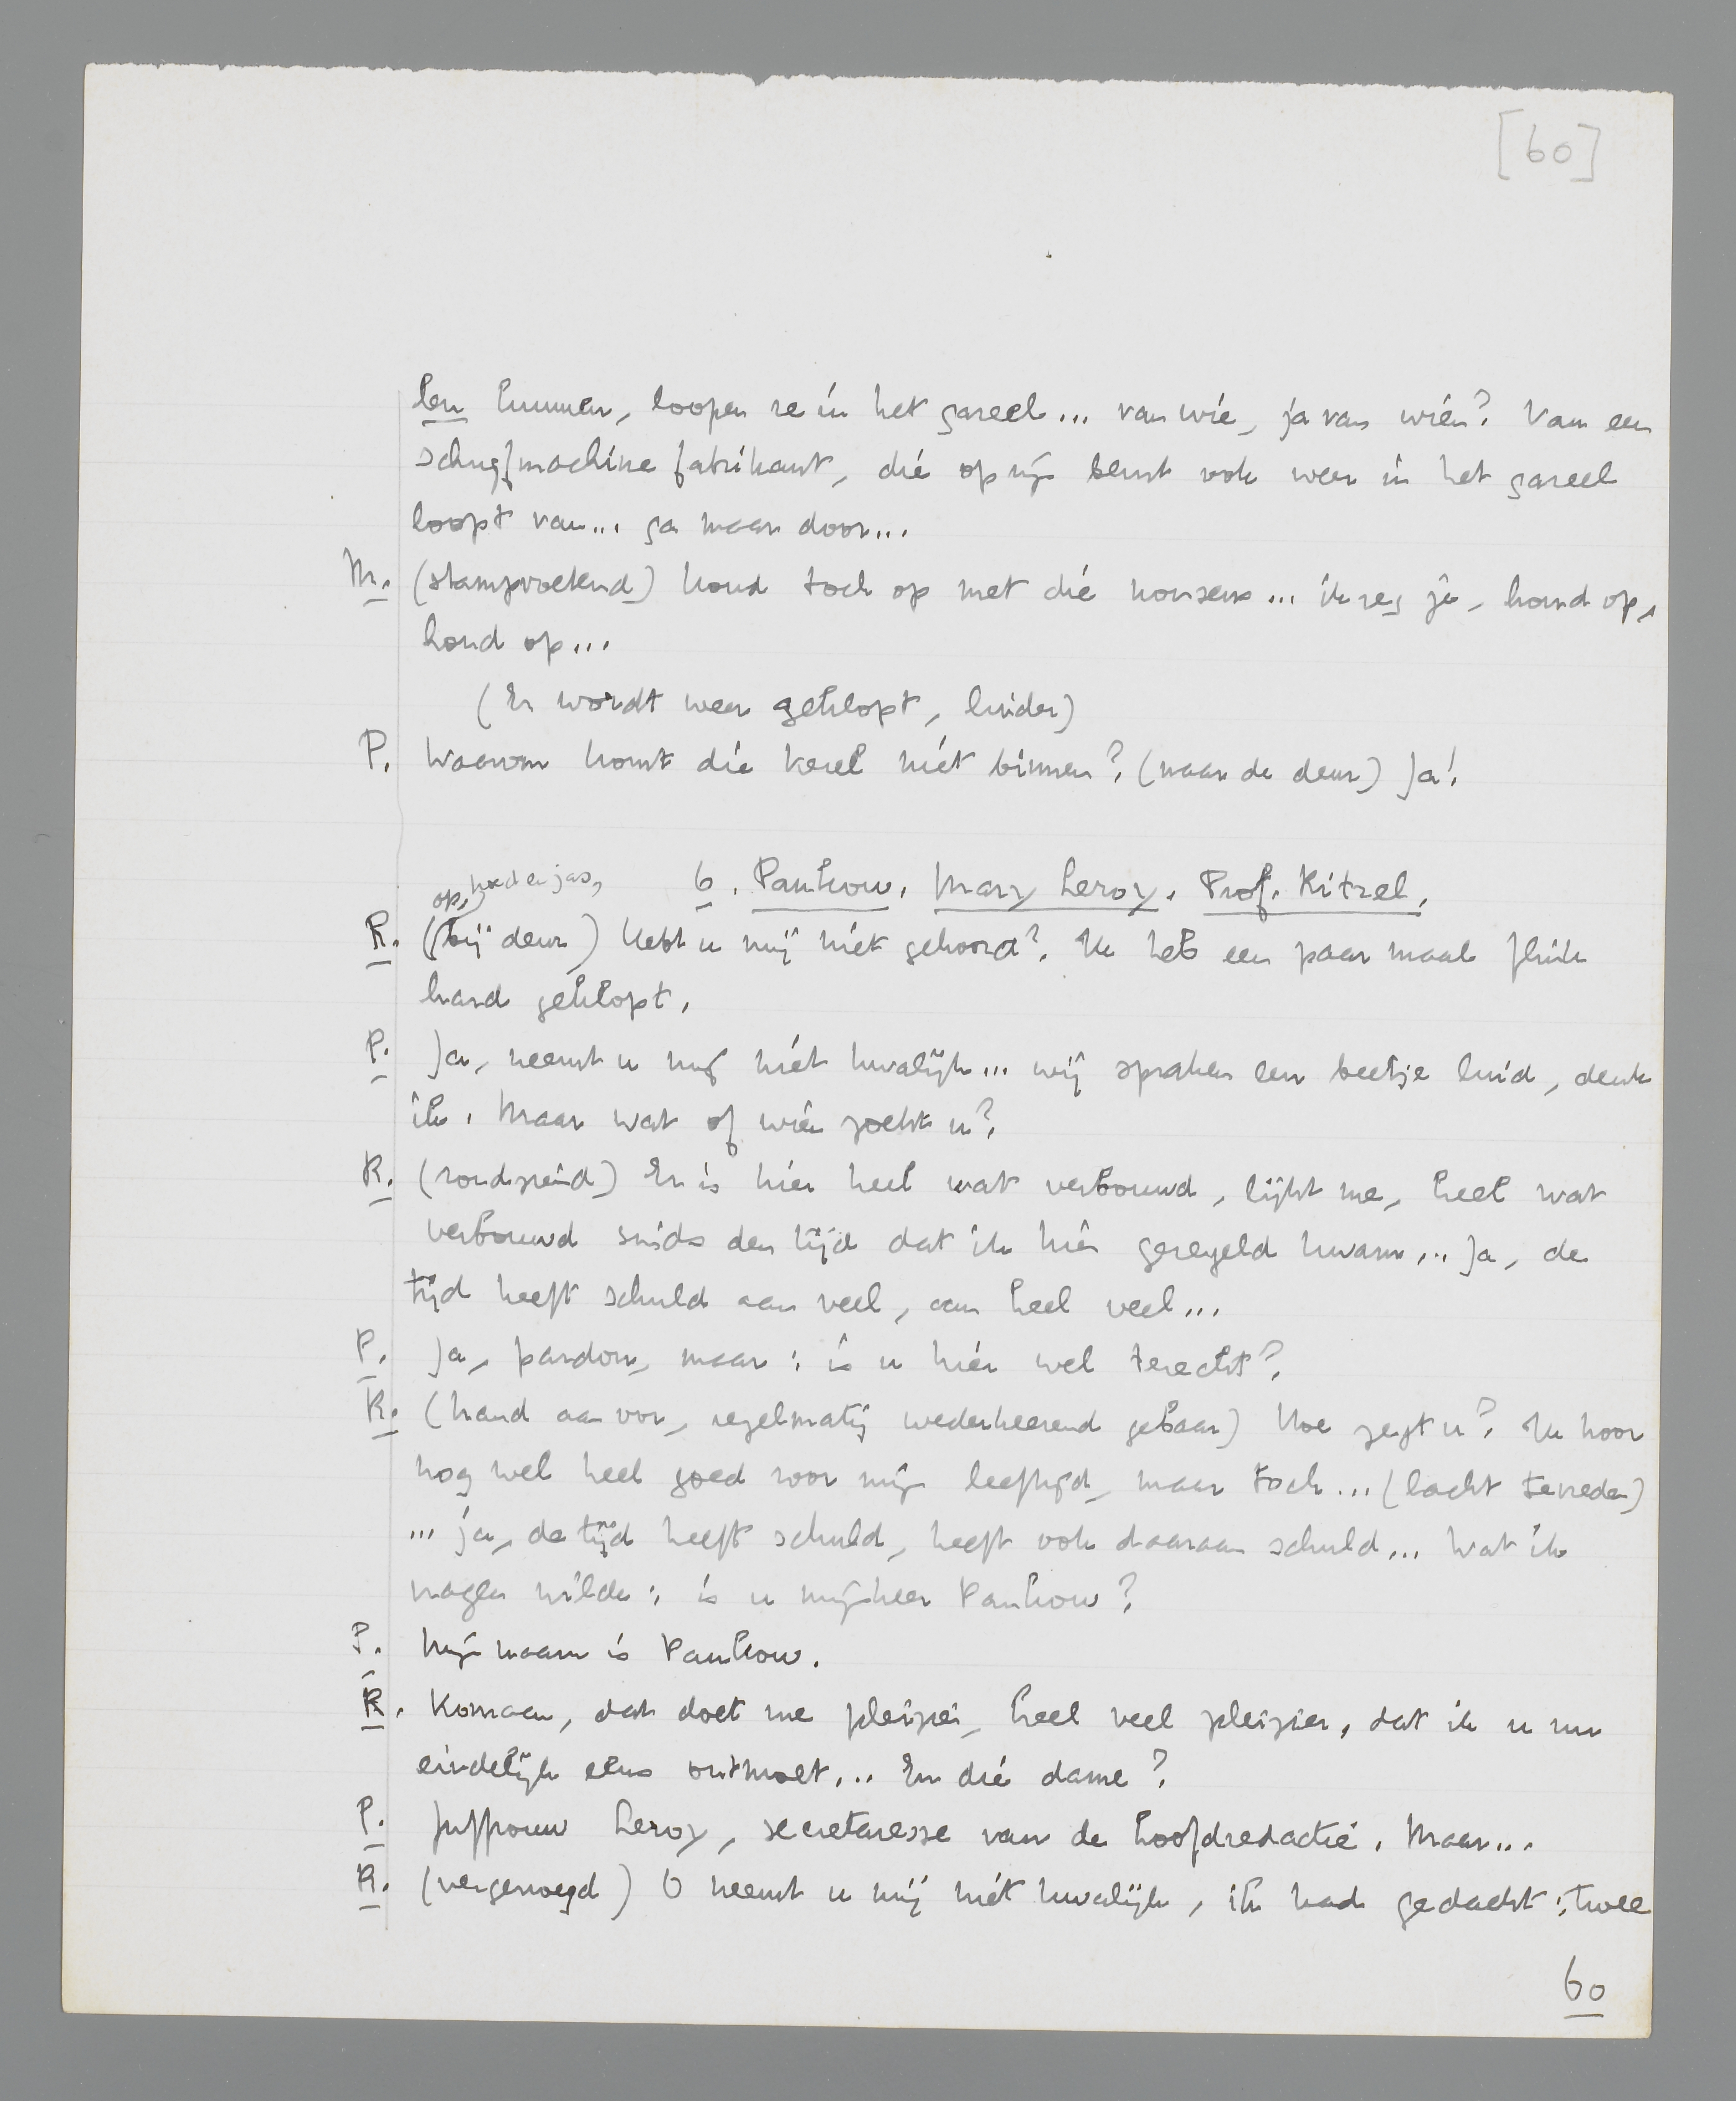 [60]
len kunnen, loopen ze in het gareel... van wie, ja van wien? Van een
schrijfmachine fabrikant, die op zijn beurt ook weer in het gareel
loopt van... ga maar door...
M. (stampvoetend) houd toch op met die nonsens... ik zeg je, houd op,
houd op...
(Er wordt weer geklopt, luider)
P. Waarom komt die kerel niet binnen? (naar de deur) Ja!
op, hoed en jas,
6. Pankow. Mary Leroy. Prof. Kitzel.
K. (bij deur) Hebt u mij niet gehoord? Ik heb een paar maal flink
hard geklopt.
P. Ja, neemt u mij niet kwalijk... wij spraken een beetje luid, denk
ik. Maar wat of wien zoekt u?
K. (rondziend) Er is hier heel wat verbouwd, lijkt me, heel wat
verbouwd sinds den tijd dat ik hier geregeld kwam... Ja, de
tijd heeft schuld aan veel, aan heel veel...
P. Ja, pardon, maar: is u hier wel terecht?
K. (hand aan oor, regelmatig wederkeerend gebaar) Hoe zegt u? Ik hoor
nog wel heel goed voor mijn leeftijd, maar toch... (lacht tevreden)
... ja, de tijd heeft schuld, heeft ook daaraan schuld... Wat ik
vragen wilde: is u mijnheer Pankow?
P. Mijn naam is Pankow.
K. Komaan, dat doet me pleizier, heel veel pleizier, dat ik u nu
eindelijk eens ontmoet... En die dame?
P. Juffrouw Leroy, secretaresse van de hoofdredactie. Maar...
K. (vergenoegd) O neemt u mij niet kwalijk, ik had gedacht: twee
60